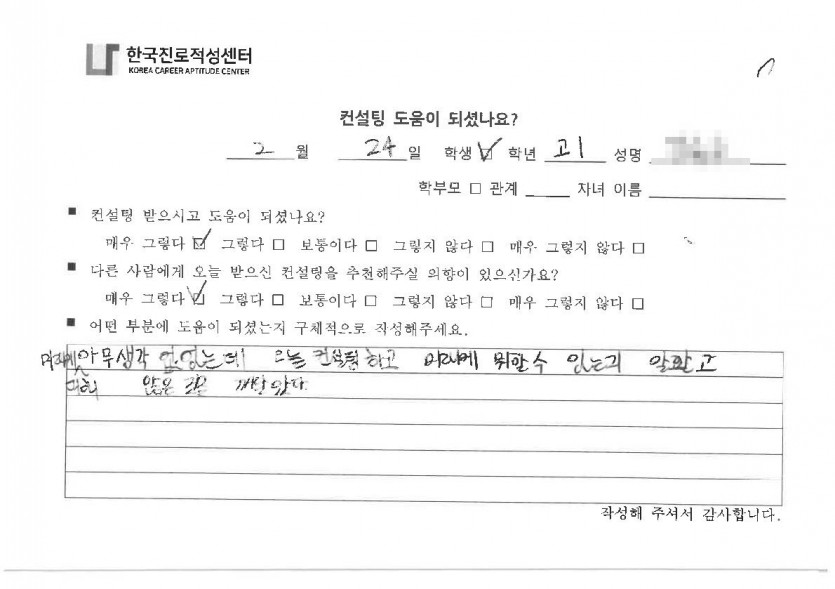 한국진로적성센터
KOREA CAREER APTITUDE CENTER
컨설팅 도움이 되셨나요?
2 월 24 일 학생 ☑ 학년 고1 성명
학부모 □ 관계 자녀 이름
■ 컨설팅 받으시고 도움이 되셨나요?
매우 그렇다 ☑ 그렇다 □ 보통이다 □ 그렇지 않다 □ 매우 그렇지 않다 □
■ 다른 사람에게 오늘 받으신 컨설팅을 추천해주실 의향이 있으신가요?
매우 그렇다 ☑ 그렇다 □ 보통이다 □ 그렇지 않다 □ 매우 그렇지 않다 □
■ 어떤 부분에 도움이 되셨는지 구체적으로 작성해주세요.
미래에 아무생각 없었는데 오늘 컨설팅하고 미래에 뭐할수 있는지
않은
작성해 주셔서 감사합니다.